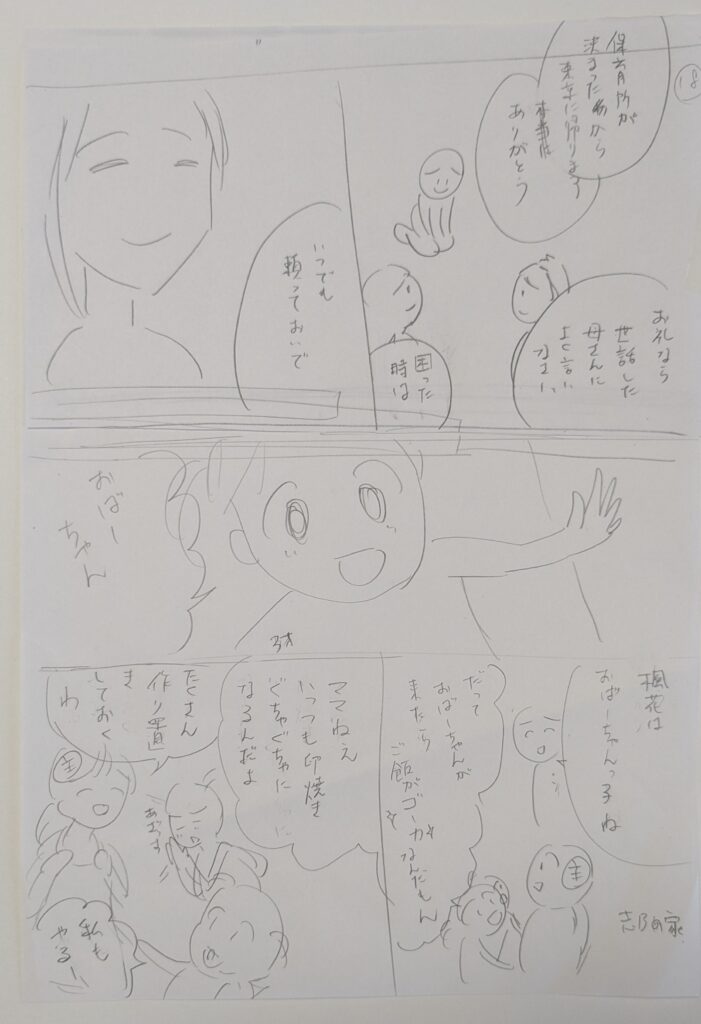 18
保育所が
決まったから
東京に帰ります
本当は
ありがとう
お礼なら
世話した
母さんに
よく言い
なさい
困った
時は
いつでも
頼っておいで
おばー
ちゃん
3才
楓花は
おばーちゃんっ子ね
志乃の家
だって
おばーちゃんが
来たら
ご飯がゴーカなんだもん
ママねえ
いっつも卵焼き
ぐちゃぐちゃに
なるんだよ
たくさん
作り置
き
しておく
わ
あざっす
私も
やるー